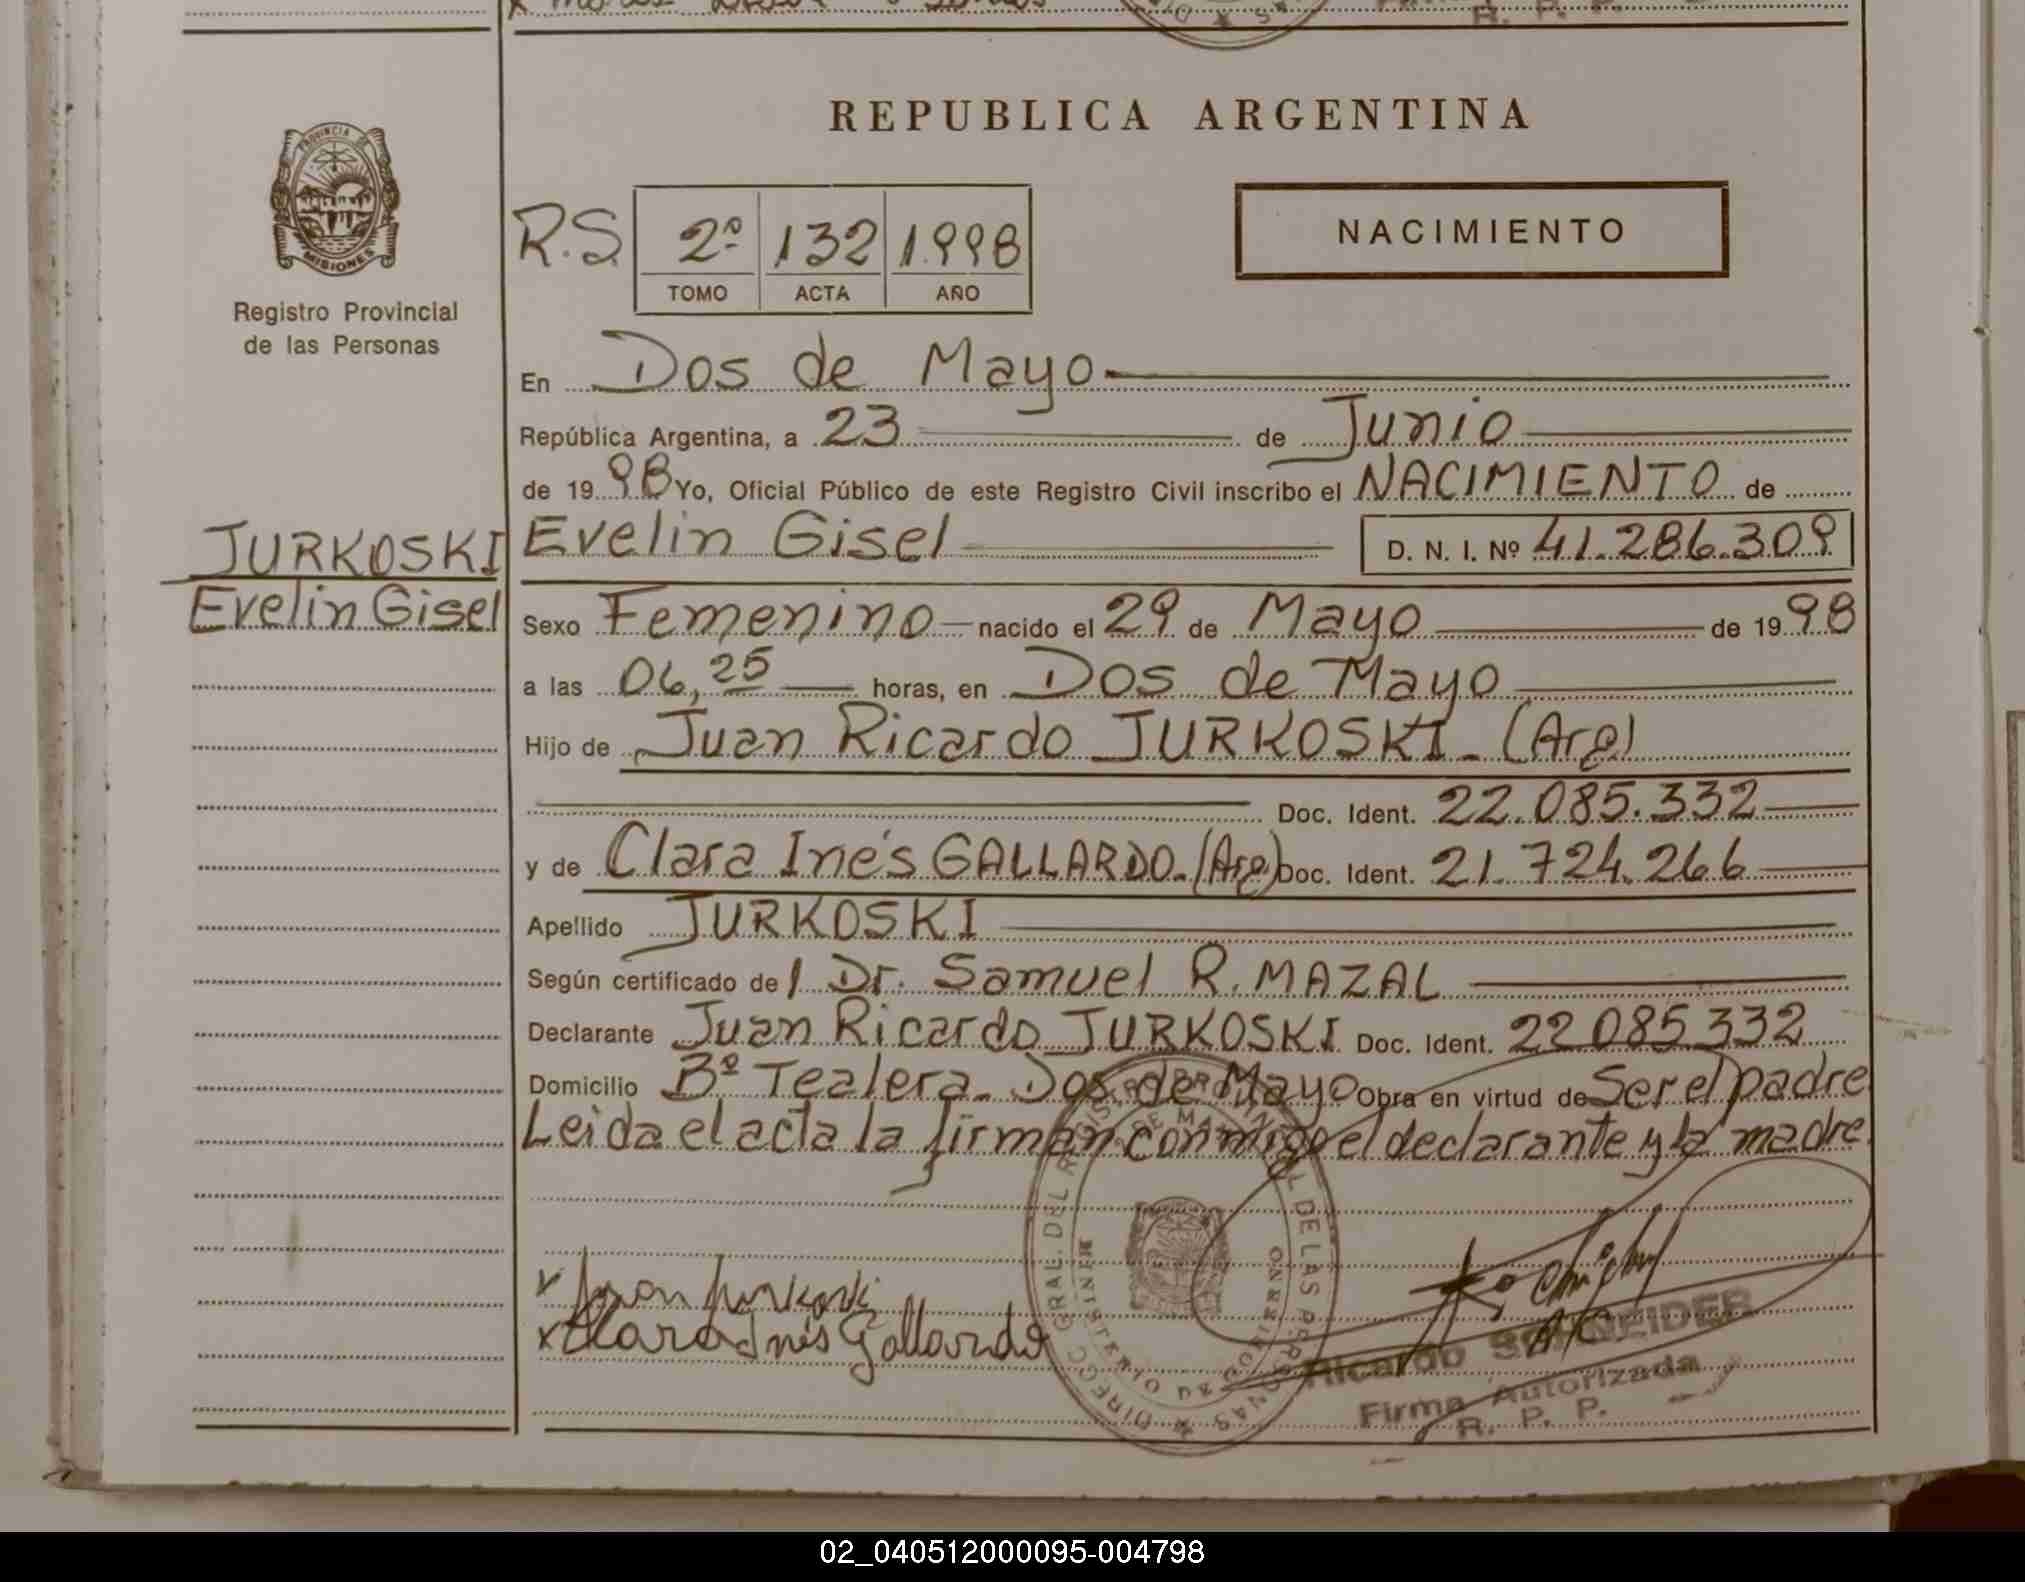 REPUBLICA ARGENTINA
PROVINCIA DE
MISIONES
Registro Provincial
de las Personas
R.S. 2º 132 1998
TOMO ACTA AÑO
NACIMIENTO
En Dos de Mayo
República Argentina, a 23 de Junio
de 1998 Yo, Oficial Público de este Registro Civil inscribo el NACIMIENTO de
JURKOSKI
Evelin Gisel
Evelin Gisel D. N. I. Nº 41.286.309
Sexo Femenino nacido el 29 de Mayo de 1998
a las 06,25 horas, en Dos de Mayo
Hijo de Juan Ricardo JURKOSKI - (Arg)
Doc. Ident. 22.085.332
y de Clara Inés GALLARDO. (Arg) Doc. Ident. 21.724.266
Apellido JURKOSKI
Según certificado del Dr. Samuel R. MAZAL
Declarante Juan Ricardo JURKOSKI Doc. Ident. 22085332
Domicilio Bº Tealera - Dos de Mayo Obra en virtud de Ser el padre
Leida el acta la firman conmigo el declarante y la madre.
x Juan Jurkoski
x Clara Inés Gallardo
DIRECC. GRAL. DEL REGISTRO PROVINCIAL DE LAS PERSONAS
MINISTERIO DE GOBIERNO
Ricardo SCHNEIDER
Firma Autorizada
R. P. P.
02_040512000095-004798